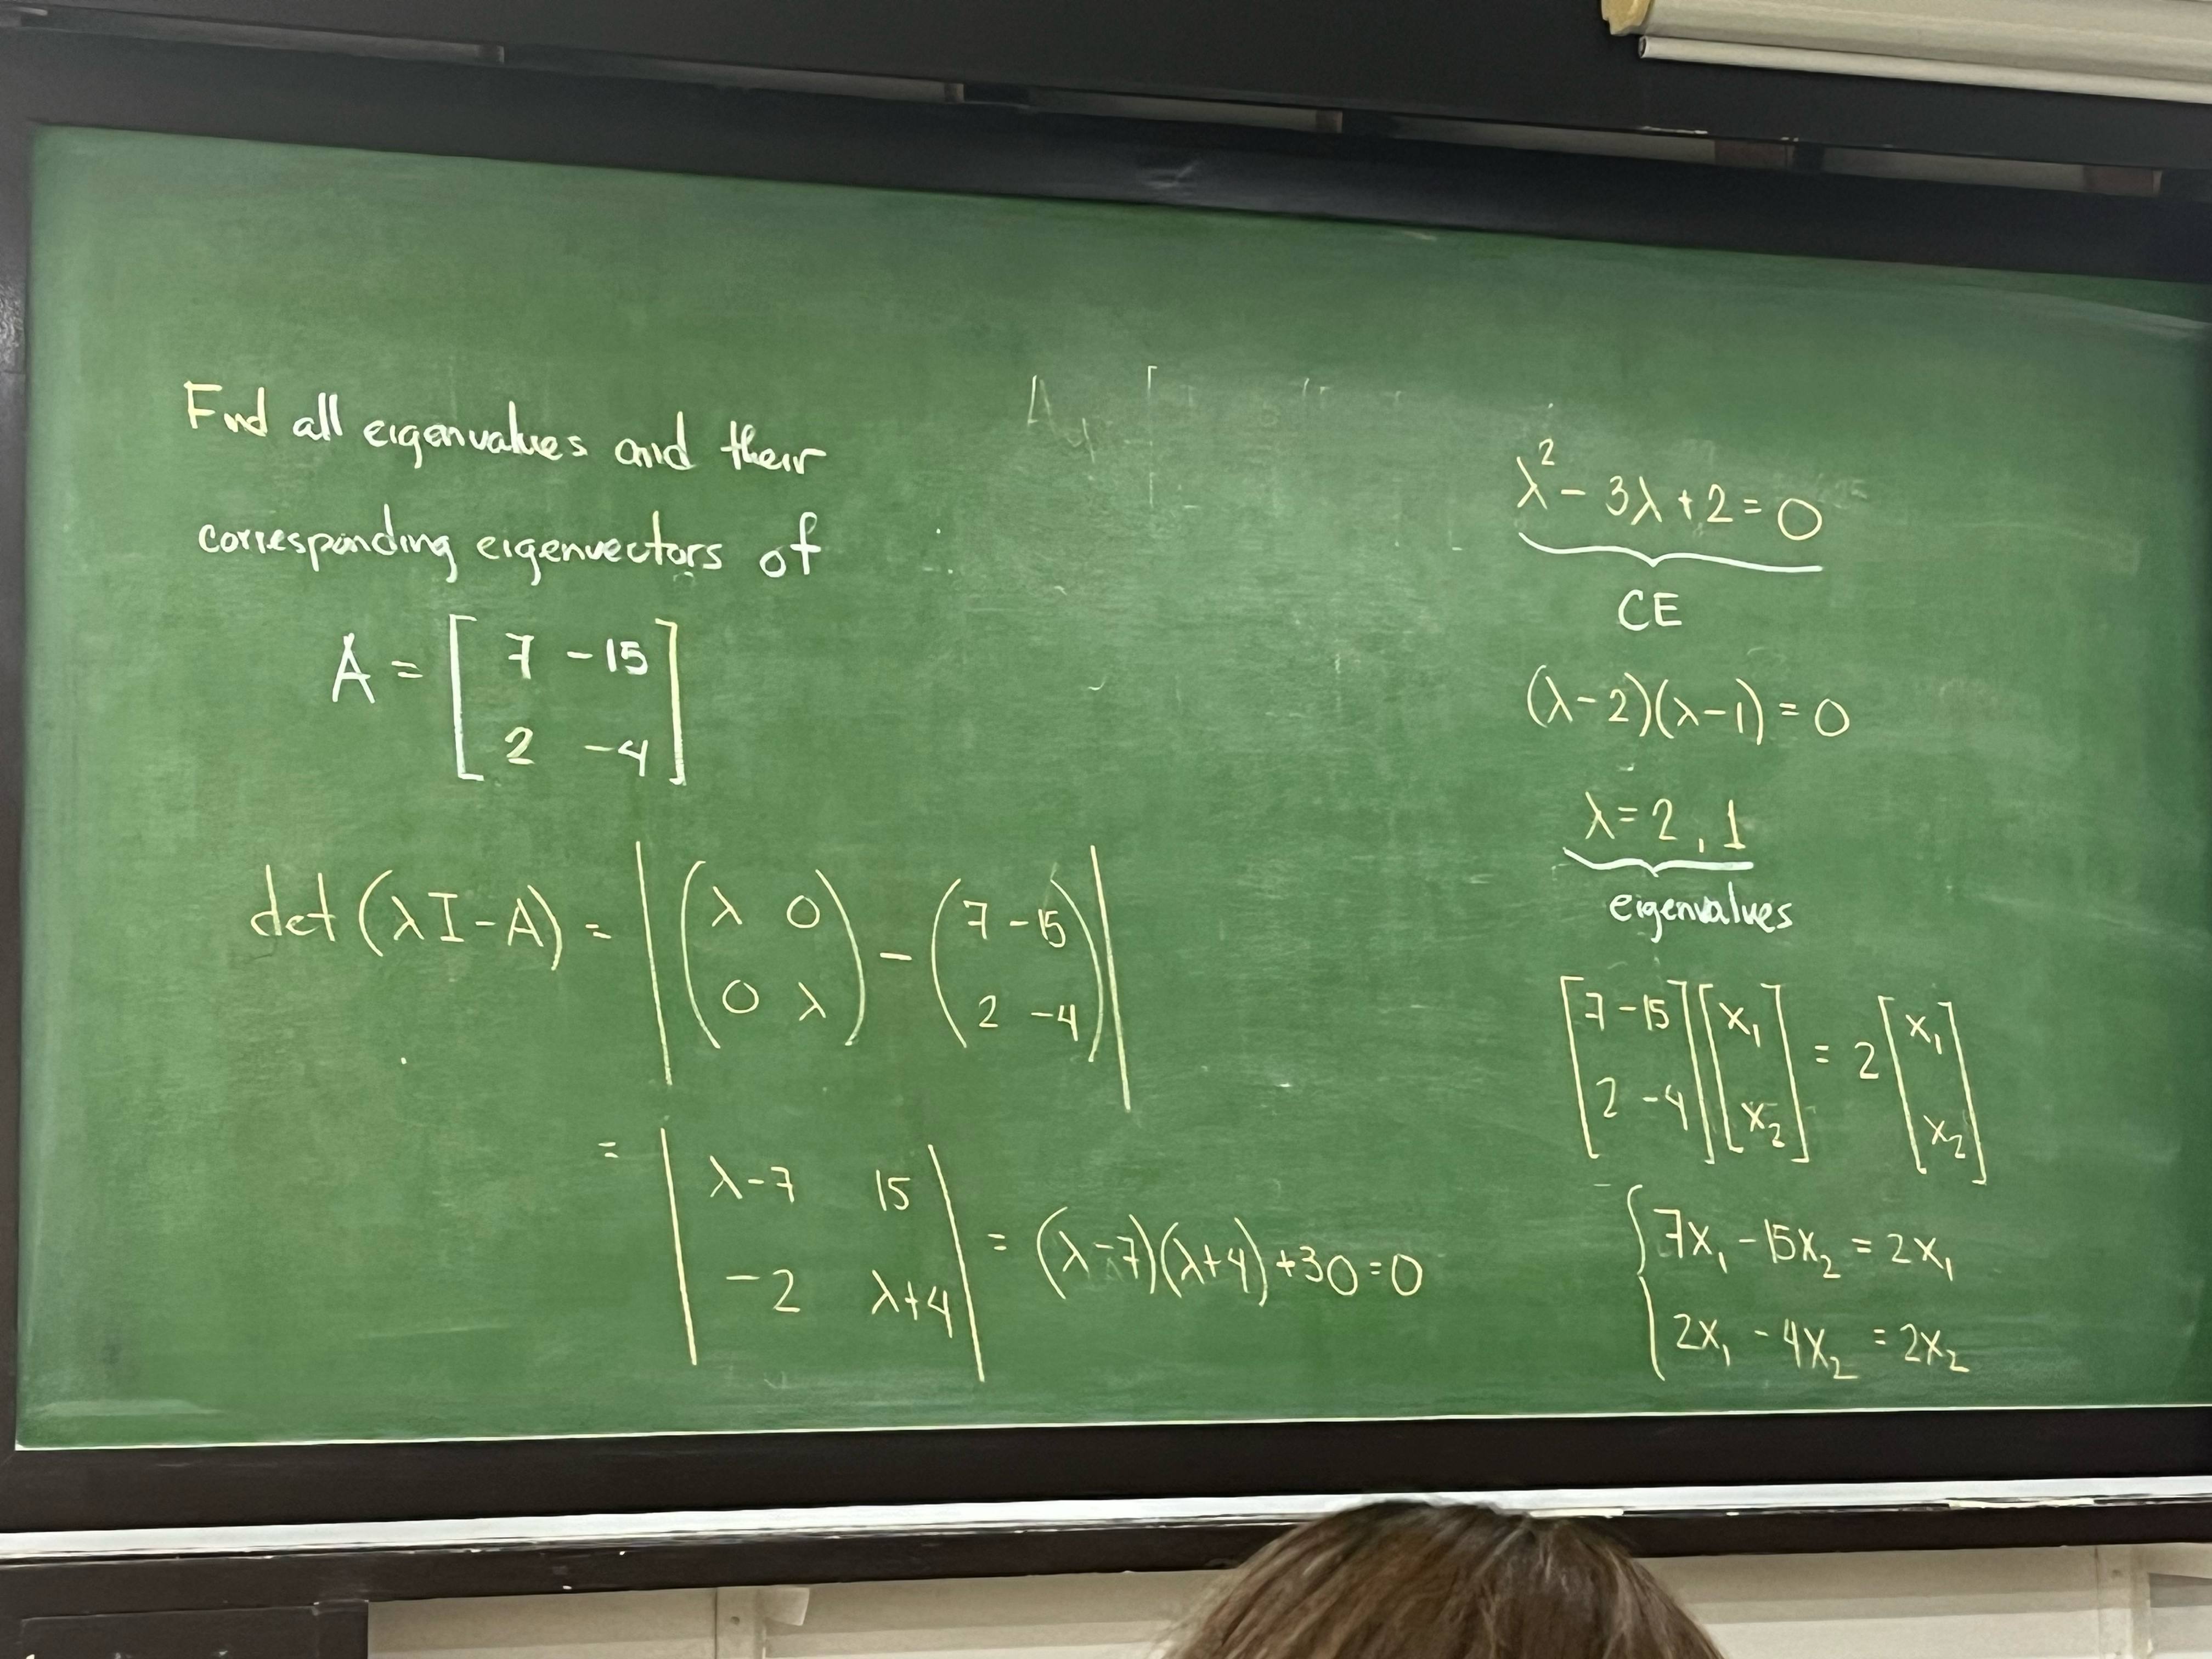 Find all eigenvalues and their
corresponding eigenvectors of
A = [ 7 -15
2 -4 ]
det (λI-A) = | ( λ 0
0 λ ) - ( 7 -15
2 -4 ) |
= | λ-7 15
-2 λ+4 | = (λ-7)(λ+4)+30=0
λ² - 3λ + 2 = 0
CE
(λ-2)(λ-1) = 0
λ = 2, 1
eigenvalues
[ 7 -15
2 -4 ] [ x₁
x₂ ] = 2 [ x₁
x₂ ]
{ 7x₁ - 15x₂ = 2x₁
2x₁ - 4x₂ = 2x₂